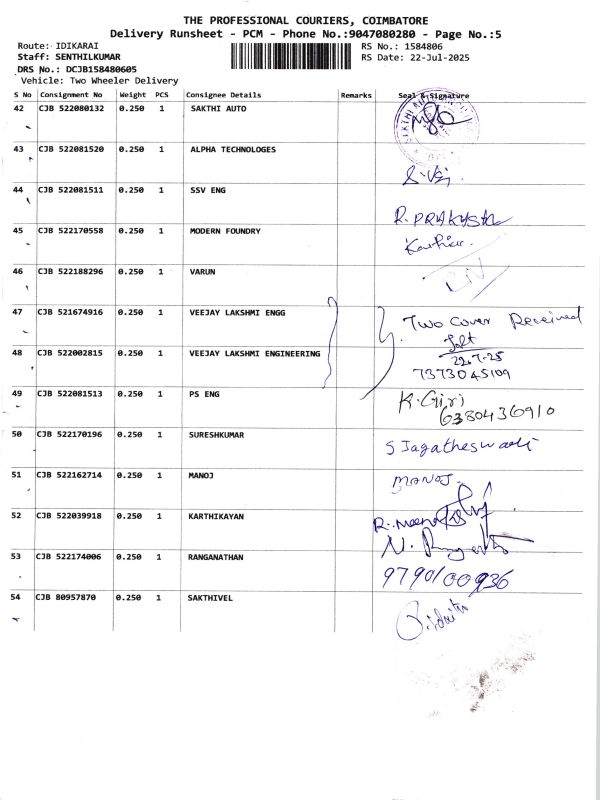 THE PROFESSIONAL COURIERS, COIMBATORE
Delivery Runsheet - PCM - Phone No.:9047080280 - Page No.:5
Route: IDIKARAI
RS No.: 1584806
Staff: SENTHILKUMAR
RS Date: 22-Jul-2025
DRS No.: DCJB158480605
Vehicle: Two Wheeler Delivery
S No Consignment No Weight PCS Consignee Details Remarks Seal & Signature
42 CJB 522080132 0.250 1 SAKTHI AUTO
43 CJB 522081520 0.250 1 ALPHA TECHNOLOGES
44 CJB 522081511 0.250 1 SSV ENG R. PRAKASH
45 CJB 522170558 0.250 1 MODERN FOUNDRY
46 CJB 522188296 0.250 1 VARUN
47 CJB 521674916 0.250 1 VEEJAY LAKSHMI ENGG Two Cover Received
48 CJB 522002815 0.250 1 VEEJAY LAKSHMI ENGINEERING 22.7.25
7373045109
49 CJB 522081513 0.250 1 PS ENG K. Giri
6380436910
50 CJB 522170196 0.250 1 SURESHKUMAR S Jagatheswari
51 CJB 522162714 0.250 1 MANOJ MANOJ.
52 CJB 522039918 0.250 1 KARTHIKAYAN
53 CJB 522174006 0.250 1 RANGANATHAN 9790100936
54 CJB 80957870 0.250 1 SAKTHIVEL